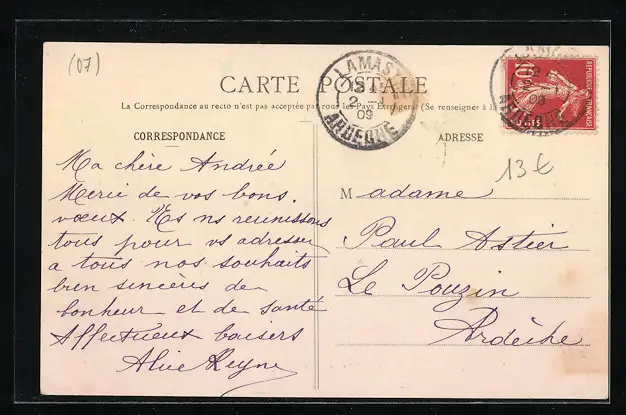 (07)
CARTE POSTALE
La Correspondance au recto n'est pas acceptée par tous les Pays Etrangers (Se renseigner à la
CORRESPONDANCE
Ma chère Andrée
Merci de vos bons
vœux. Ns ns reunissons
tous pour vs adresser
a tous nos souhaits
bien sincères de
bonheur et de santé
Affectueux baisers
Alice Reyne
LAMASTRE
2 - 1
09
ARDECHE
ADRESSE
Madame
Paul Astier
Le Pouzin
Ardèche
13 €
10
REPUBLIQUE FRANÇAISE
09
ARDECHE